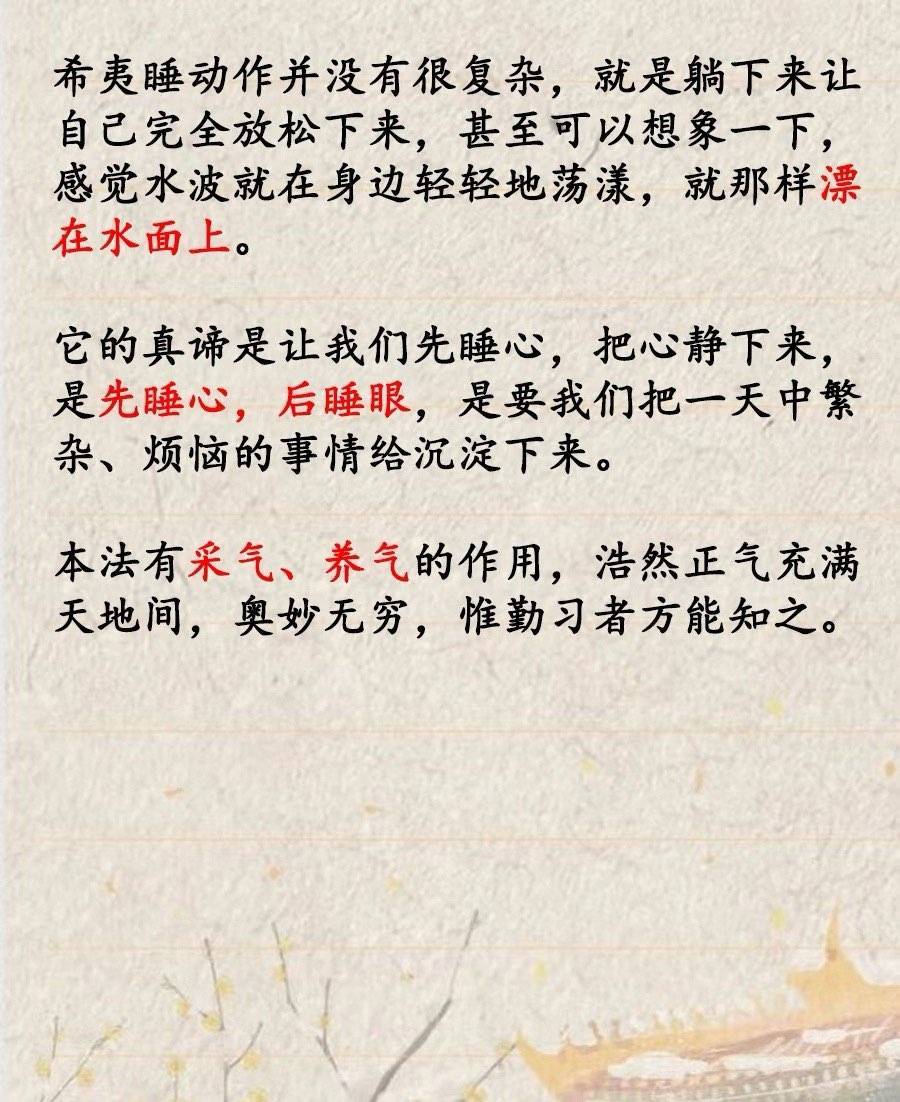 希夷睡动作并没有很复杂，就是躺下来让
自己完全放松下来，甚至可以想象一下，
感觉水波就在身边轻轻地荡漾，就那样漂
在水面上。
它的真谛是让我们先睡心，把心静下来，
是先睡心，后睡眼，是要我们把一天中繁
杂、烦恼的事情给沉淀下来。
本法有采气、养气的作用，浩然正气充满
天地间，奥妙无穷，惟勤习者方能知之。